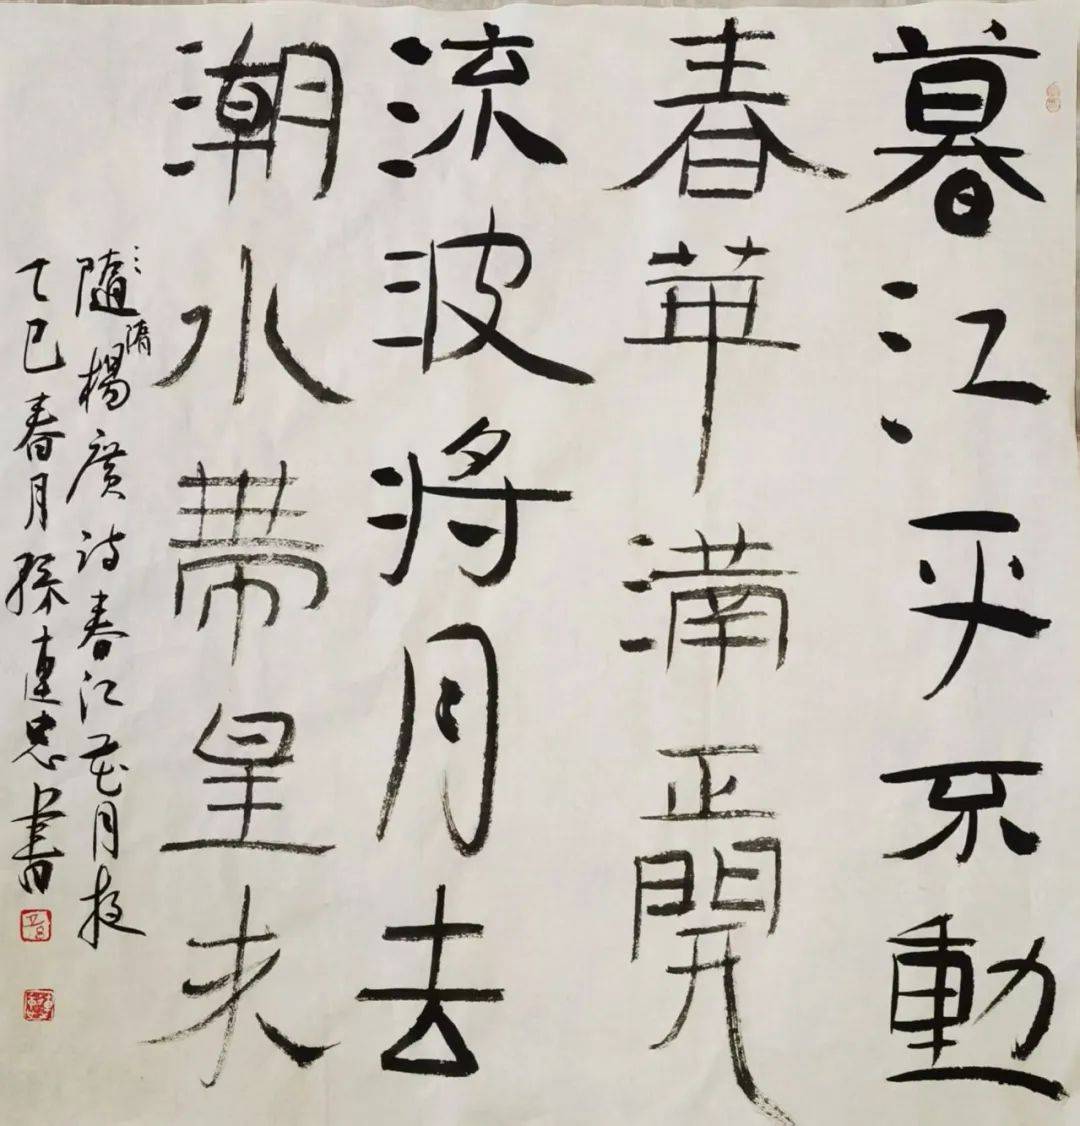 暮江平不動
春華滿正開
流波将月去
潮水帶星来
隨隋楊廣詩春江花月夜
乙巳春月孫連忠書